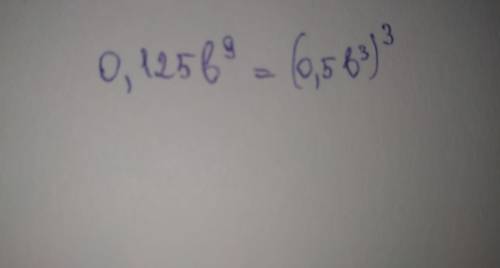 0,125b⁹ = (0,5b³)³